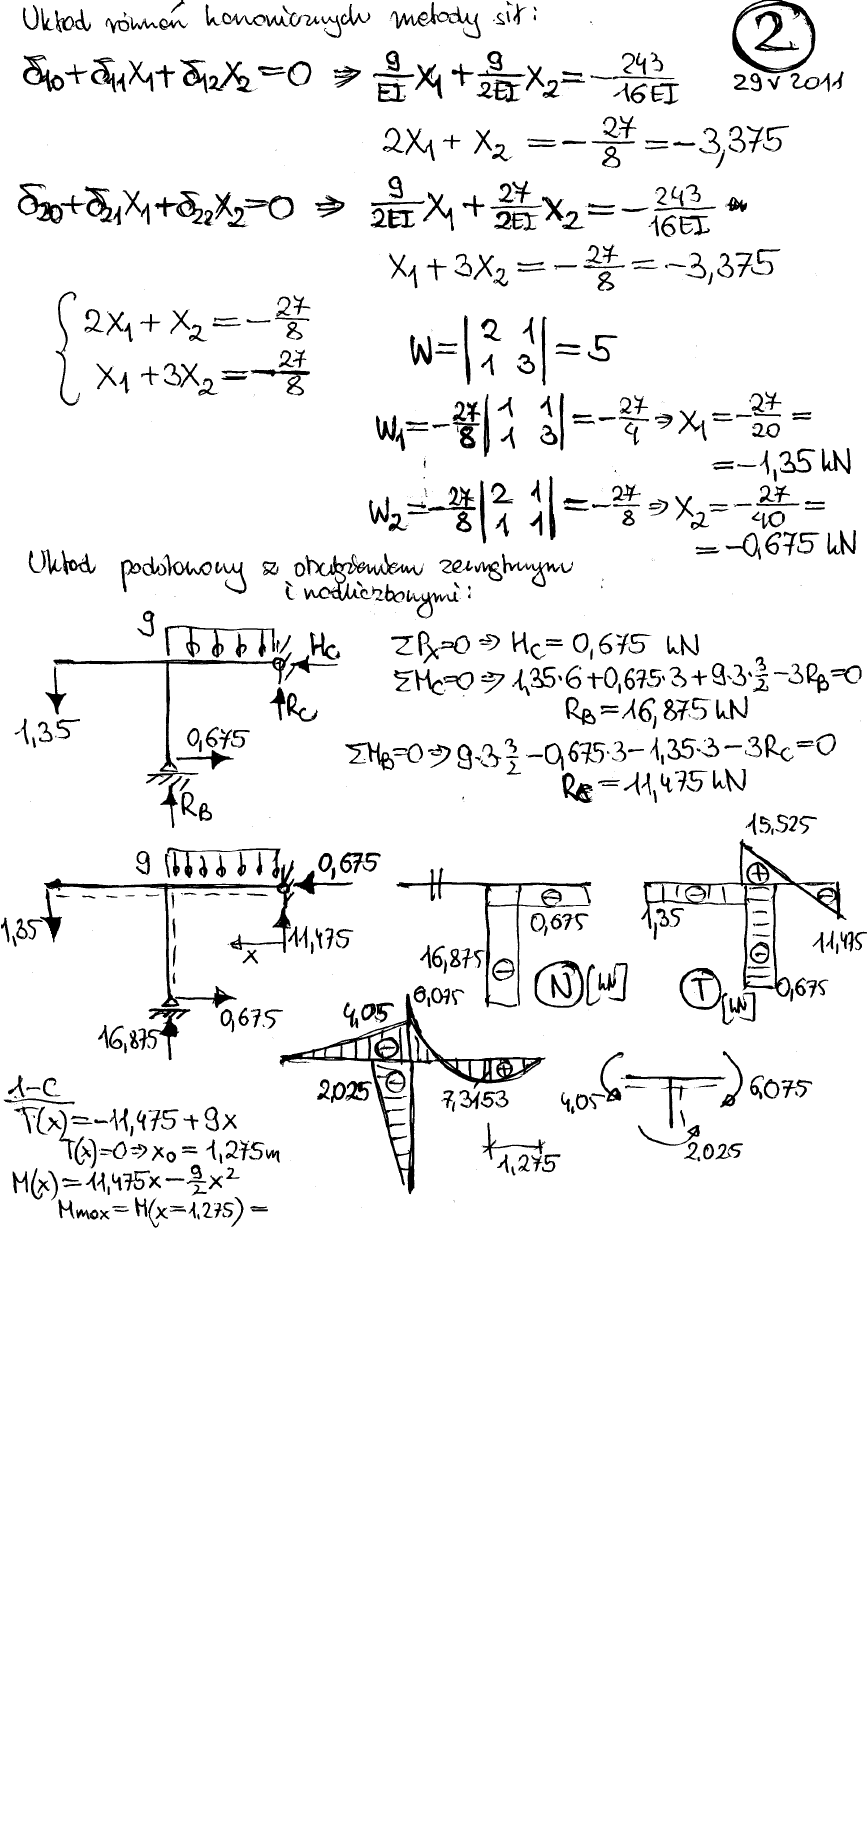 Układ równań kanonicznych metody sił:
2
29 V 2011
δ10+δ11X1+δ12X2=0 ⇒ 9/EI X1 + 9/2EI X2 = -243/16EI
2X1 + X2 = -27/8 = -3,375
δ20+δ21X1+δ22X2=0 ⇒ 9/2EI X1 + 27/2EI X2 = -243/16EI
X1 + 3X2 = -27/8 = -3,375
{ 2X1 + X2 = -27/8
X1 + 3X2 = -27/8
W = |2 1; 1 3| = 5
W1 = -27/8 |1 1; 1 3| = -27/4 ⇒ X1 = -27/20 =
= -1,35 kN
W2 = -27/8 |2 1; 1 1| = -27/8 ⇒ X2 = -27/40 =
= -0,675 kN
Układ podstawowy z obciążeniem zewnętrznym
i nadliczbowymi:
9
HC
1,35
RC
0,675
RB
ΣPx=0 ⇒ HC = 0,675 kN
ΣMC=0 ⇒ 1,35·6+0,675·3+9·3·3/2-3RB=0
RB = 16,875 kN
ΣMB=0 ⇒ 9·3·3/2-0,675·3-1,35·3-3RC=0
RC = 11,475 kN
9
0,675
1,35
11,475
x
0,675
16,875
0,675
16,875
N [kN]
15,525
1,35
11,475
0,675
T [kN]
4,05
6,075
2,025
7,3153
1,275
4,05
6,075
2,025
1-C
T(x) = -11,475 + 9x
T(x)=0 ⇒ x0 = 1,275m
M(x) = 11,475x - 9/2 x²
Mmax = M(x=1,275) =